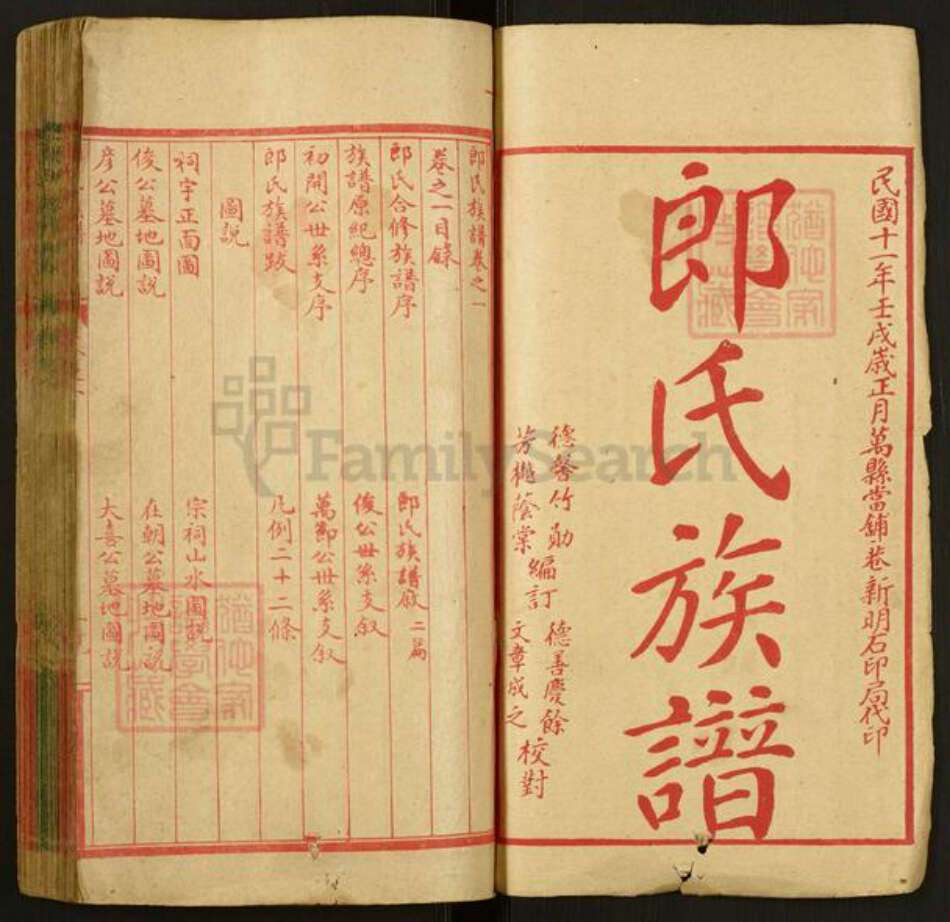 民國十一年壬戌歲正月萬縣當鋪巷新明石印局代印
郎氏族譜
德馨竹勛
芳樾蔭棠
編訂
德善慶餘
文章成之
校對
郎氏族譜卷之一
卷之一目錄
郎氏合修族譜序 郎氏族譜敘二篇
族譜原紀總序 俊公世系支敘
初開公世系支序 萬郎公世系支叙
郎氏族譜跋 凡例二十二條
圖說
祠宇正面圖 宗祠山水圖説
俊公墓地圖説 在朝公墓地圖説
彦公墓地圖説 大喜公墓地圖説
FamilySearch